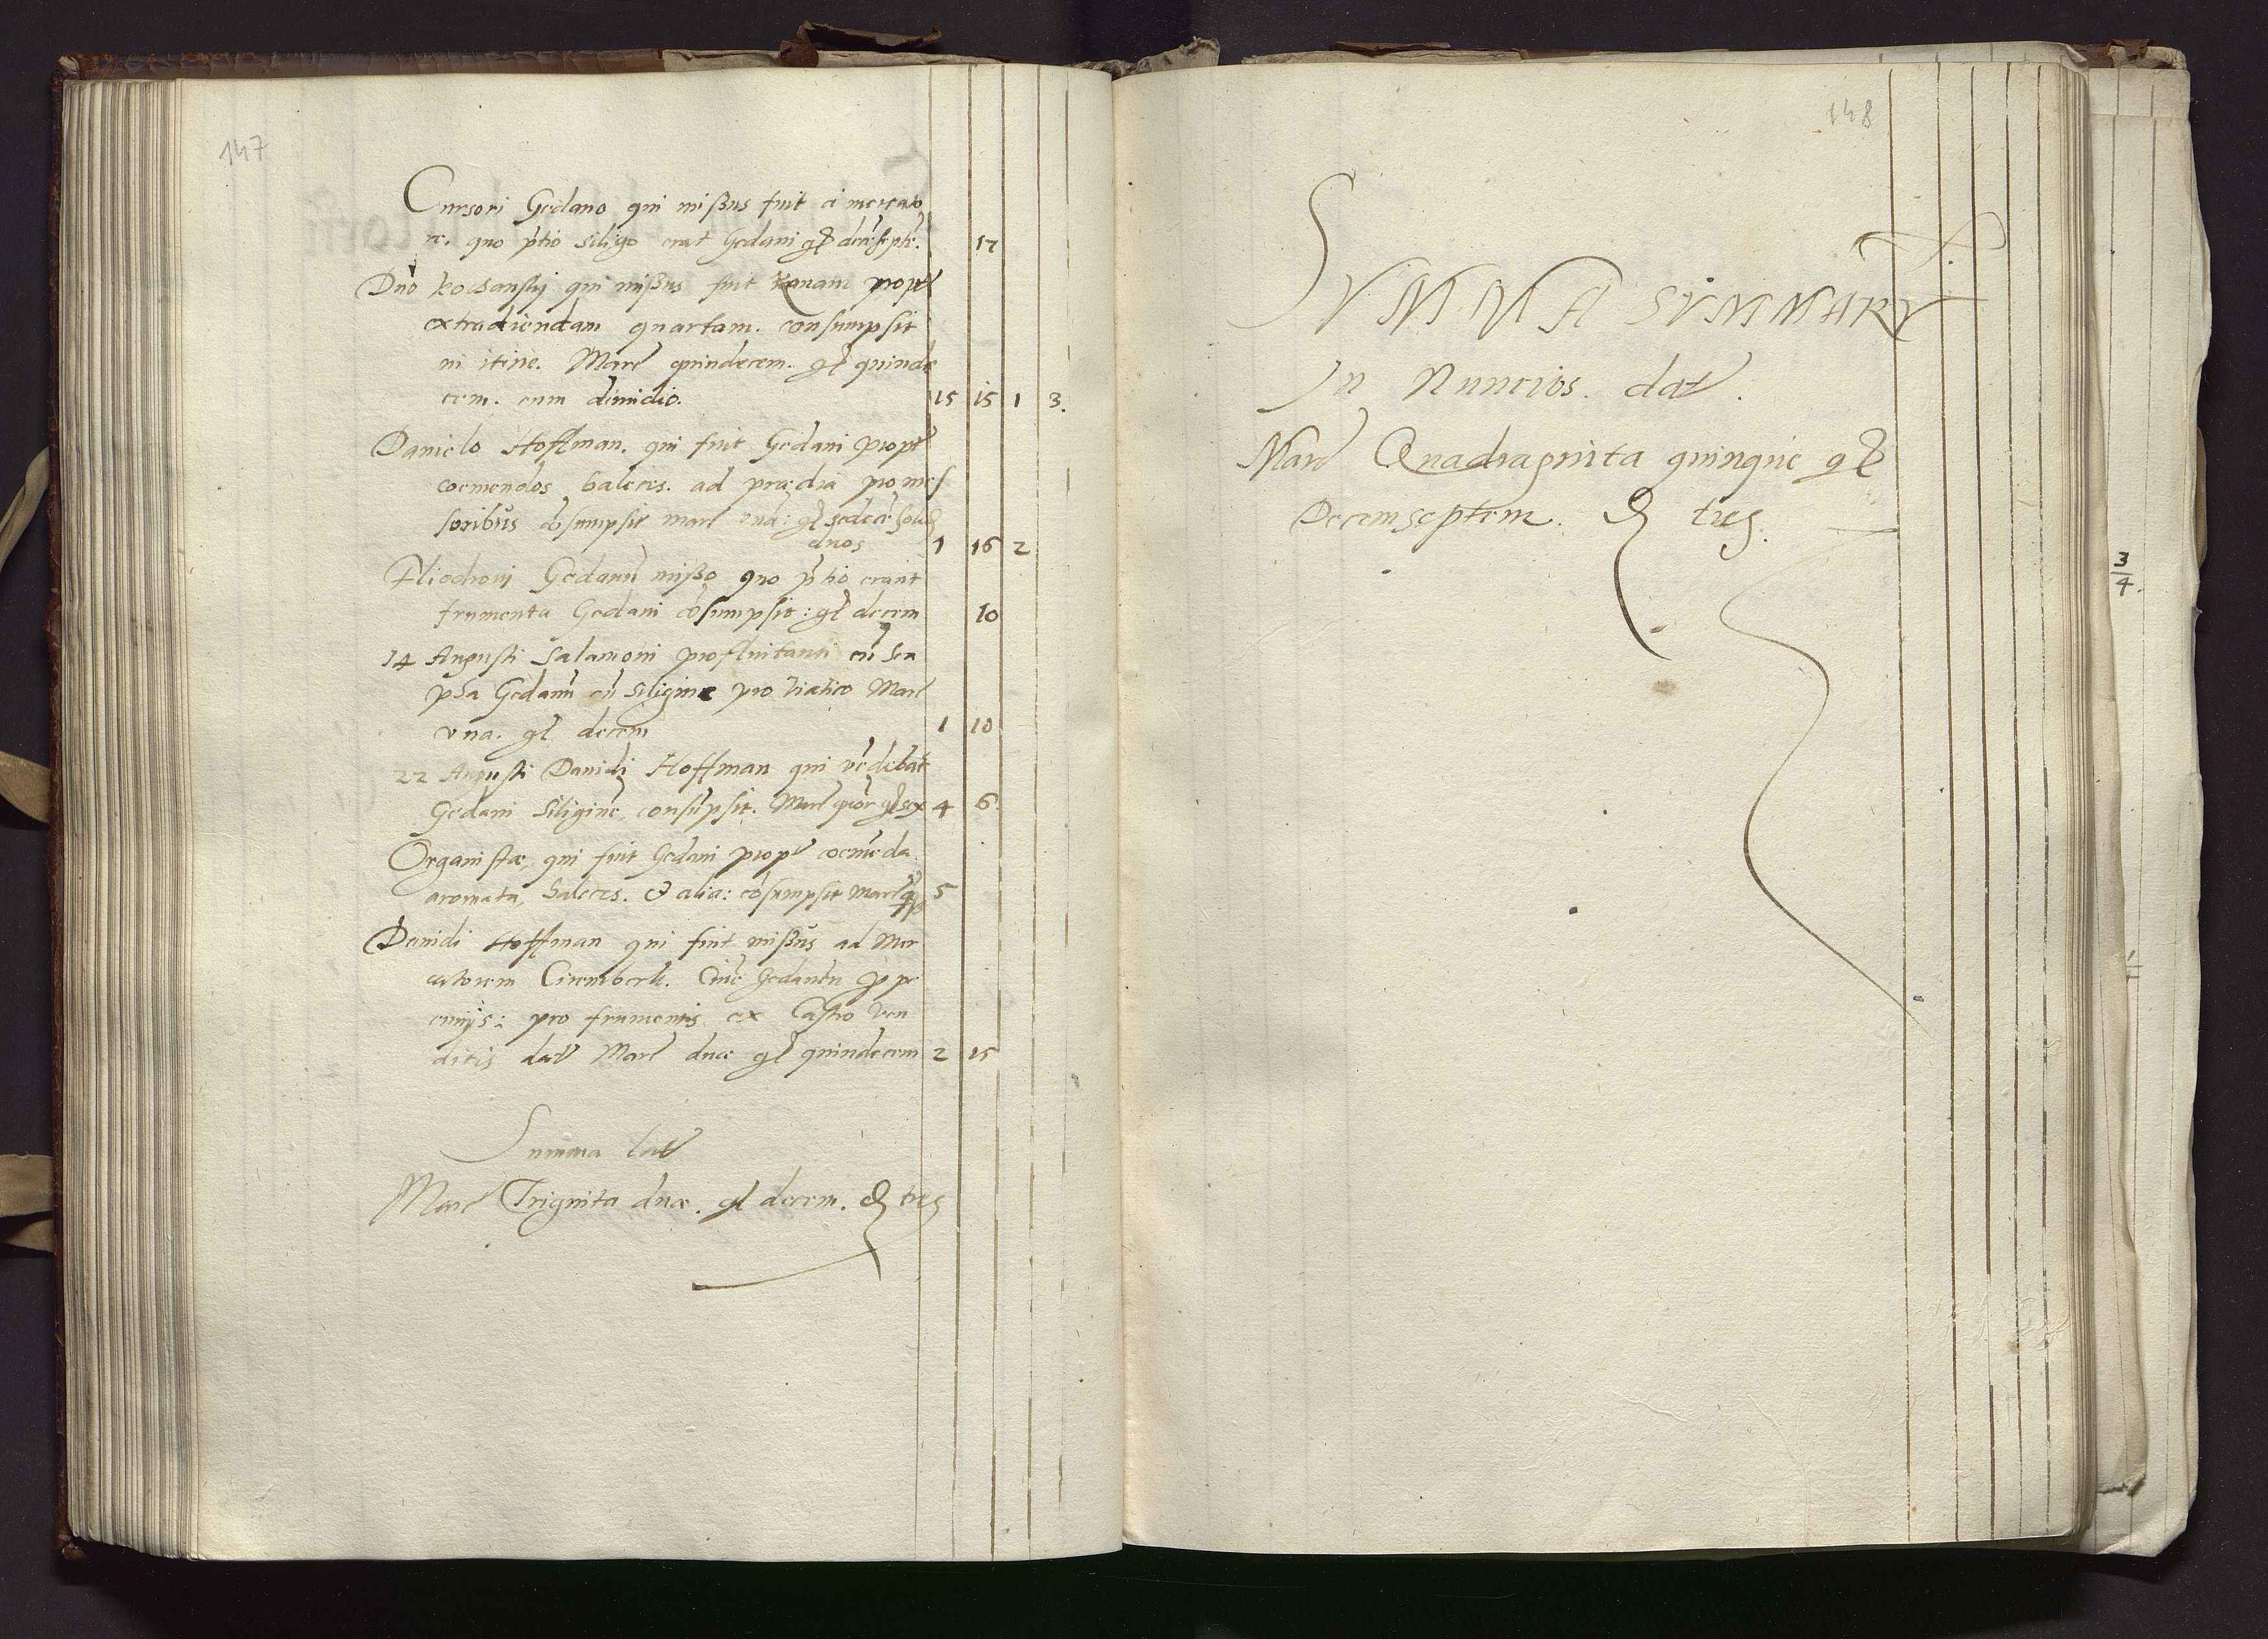 147
Cursori Gedano qui missus fuit a mercato
re. quo ptio siligo erat Gedani gr deceseptē. 17
Dno Kochanskj qui missus fuit Ravam propt
extradēndam quartam. consumpsit
in itine. Marc quindecem. gr quinde
cem. cum dimidio. 15 15 1 3.
Danielo Hoffman. qui fuit Gedani propt
coemendos haleces. ad prædia pro mes
soribus cōsumpsit marc vnā: gr sedecē solid
duos 1 16 2
Gedanū misso quo ptio erant
frumenta Gedani cōsumpsit: gr decem 10
14 Augusti Salamoni profluitanti cū sca
pha Gedanū cū siligine pro viatico Marc
vna. gr decem 1 10
22 Augusti Danieli Hoffman qui vēdebat
Gedani siliginē, consūpsit. Marc quor gr sex 4 6.
Organistæ, qui fuit Gedani propt coemēda
aromata, haleces. & alia: cōsumpsit marc 5
Danieli Hoffman qui fuit missus ad Mer
catorem Ciremberk. Civē Gedanēn pro pe
cunijs: pro frumentis ex Castro ven
ditis dat Marc duæ gr quindecem 2 15
Summa lat
Marc Triginta duæ. gr decem. d tres
148
SVMMA SVMMARV
In Nuncios. dat.
Marc Quadraginta quinque gr
Decemseptem. d tres.
3
4.